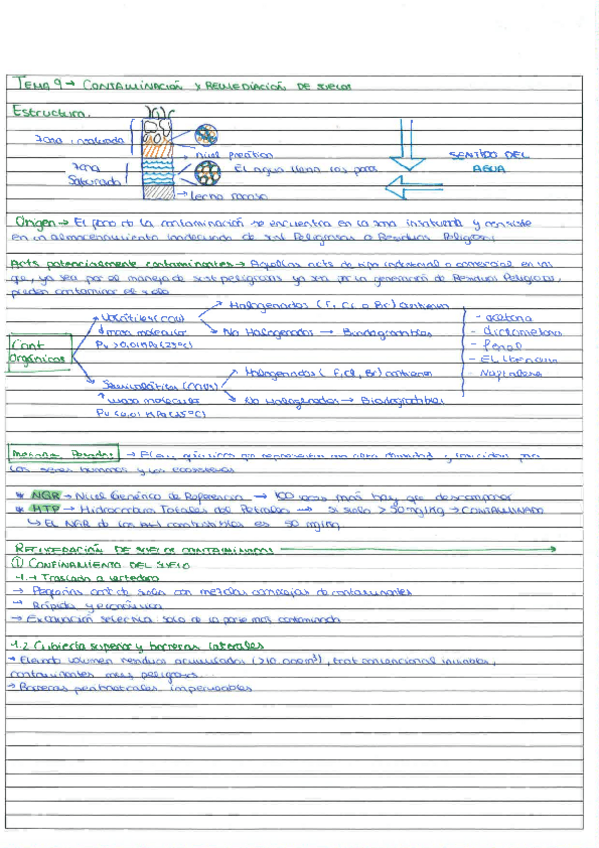 TEMA 9 → CONTAMINACIÓN Y REMEDIACIÓN DE SUELOS
Estructura.
Zona insaturada
nivel freático
El agua llena los poros
SENTIDO DEL AGUA
Zona Saturada
lecho rocoso
Origen → El foco de la contaminación se encuentra en la zona insaturada y consiste
en un almacenamiento inadecuado de sust Peligrosas o Residuos Peligrosos
Acts potencialmente contaminantes → Aquellas acts de tipo industrial o comercial en las
que, ya sea por el manejo de sust peligrosas ya sea por la generación de Residuos Peligrosos,
pueden contaminar el suelo
Cont Orgánicos
Volátiles (COV)
↓ masa molecular
Pv > 0,01 KPa (25ºC)
Halogenados (F, Cl o Br) contienen
No Halogenados → Biodegradables
Semivolátiles (COVS)
↑ masa molecular
Pv < 0,01 KPa (25ºC)
Halogenados (F, Cl, Br) contienen
No Halogenados → Biodegradables
- acetona
- diclorometano
- fenol
-
- Naftaleno
Metales Pesados → químicos que representan una alta densidad y toxicidad para
los seres humanos y los ecosistemas
* NGR → Nivel Genérico de Referencia → 100 veces más hay que descontaminar
* HTP → Hidrocarburos Totales del Petróleo → si suelo > 50 mg/kg → CONTAMINADO
↳ EL NGR de los combustibles es 50 mg/kg
RECUPERACIÓN DE SUELOS CONTAMINADOS
① CONFINAMIENTO DEL SUELO
1.1 → Traslado a vertedero
→ Pequeñas cant de suelo con mezclas complejas de contaminantes
→ Rápida y económica
→ Excavación selectiva: solo de la parte más contaminada
1.2 Cubierta superior y barreras laterales
→ Elevado volumen residuos acumulados (>10.000m³), trat convencional inviables,
contaminantes muy peligrosos...
→ Barreras perimetrales impermeables